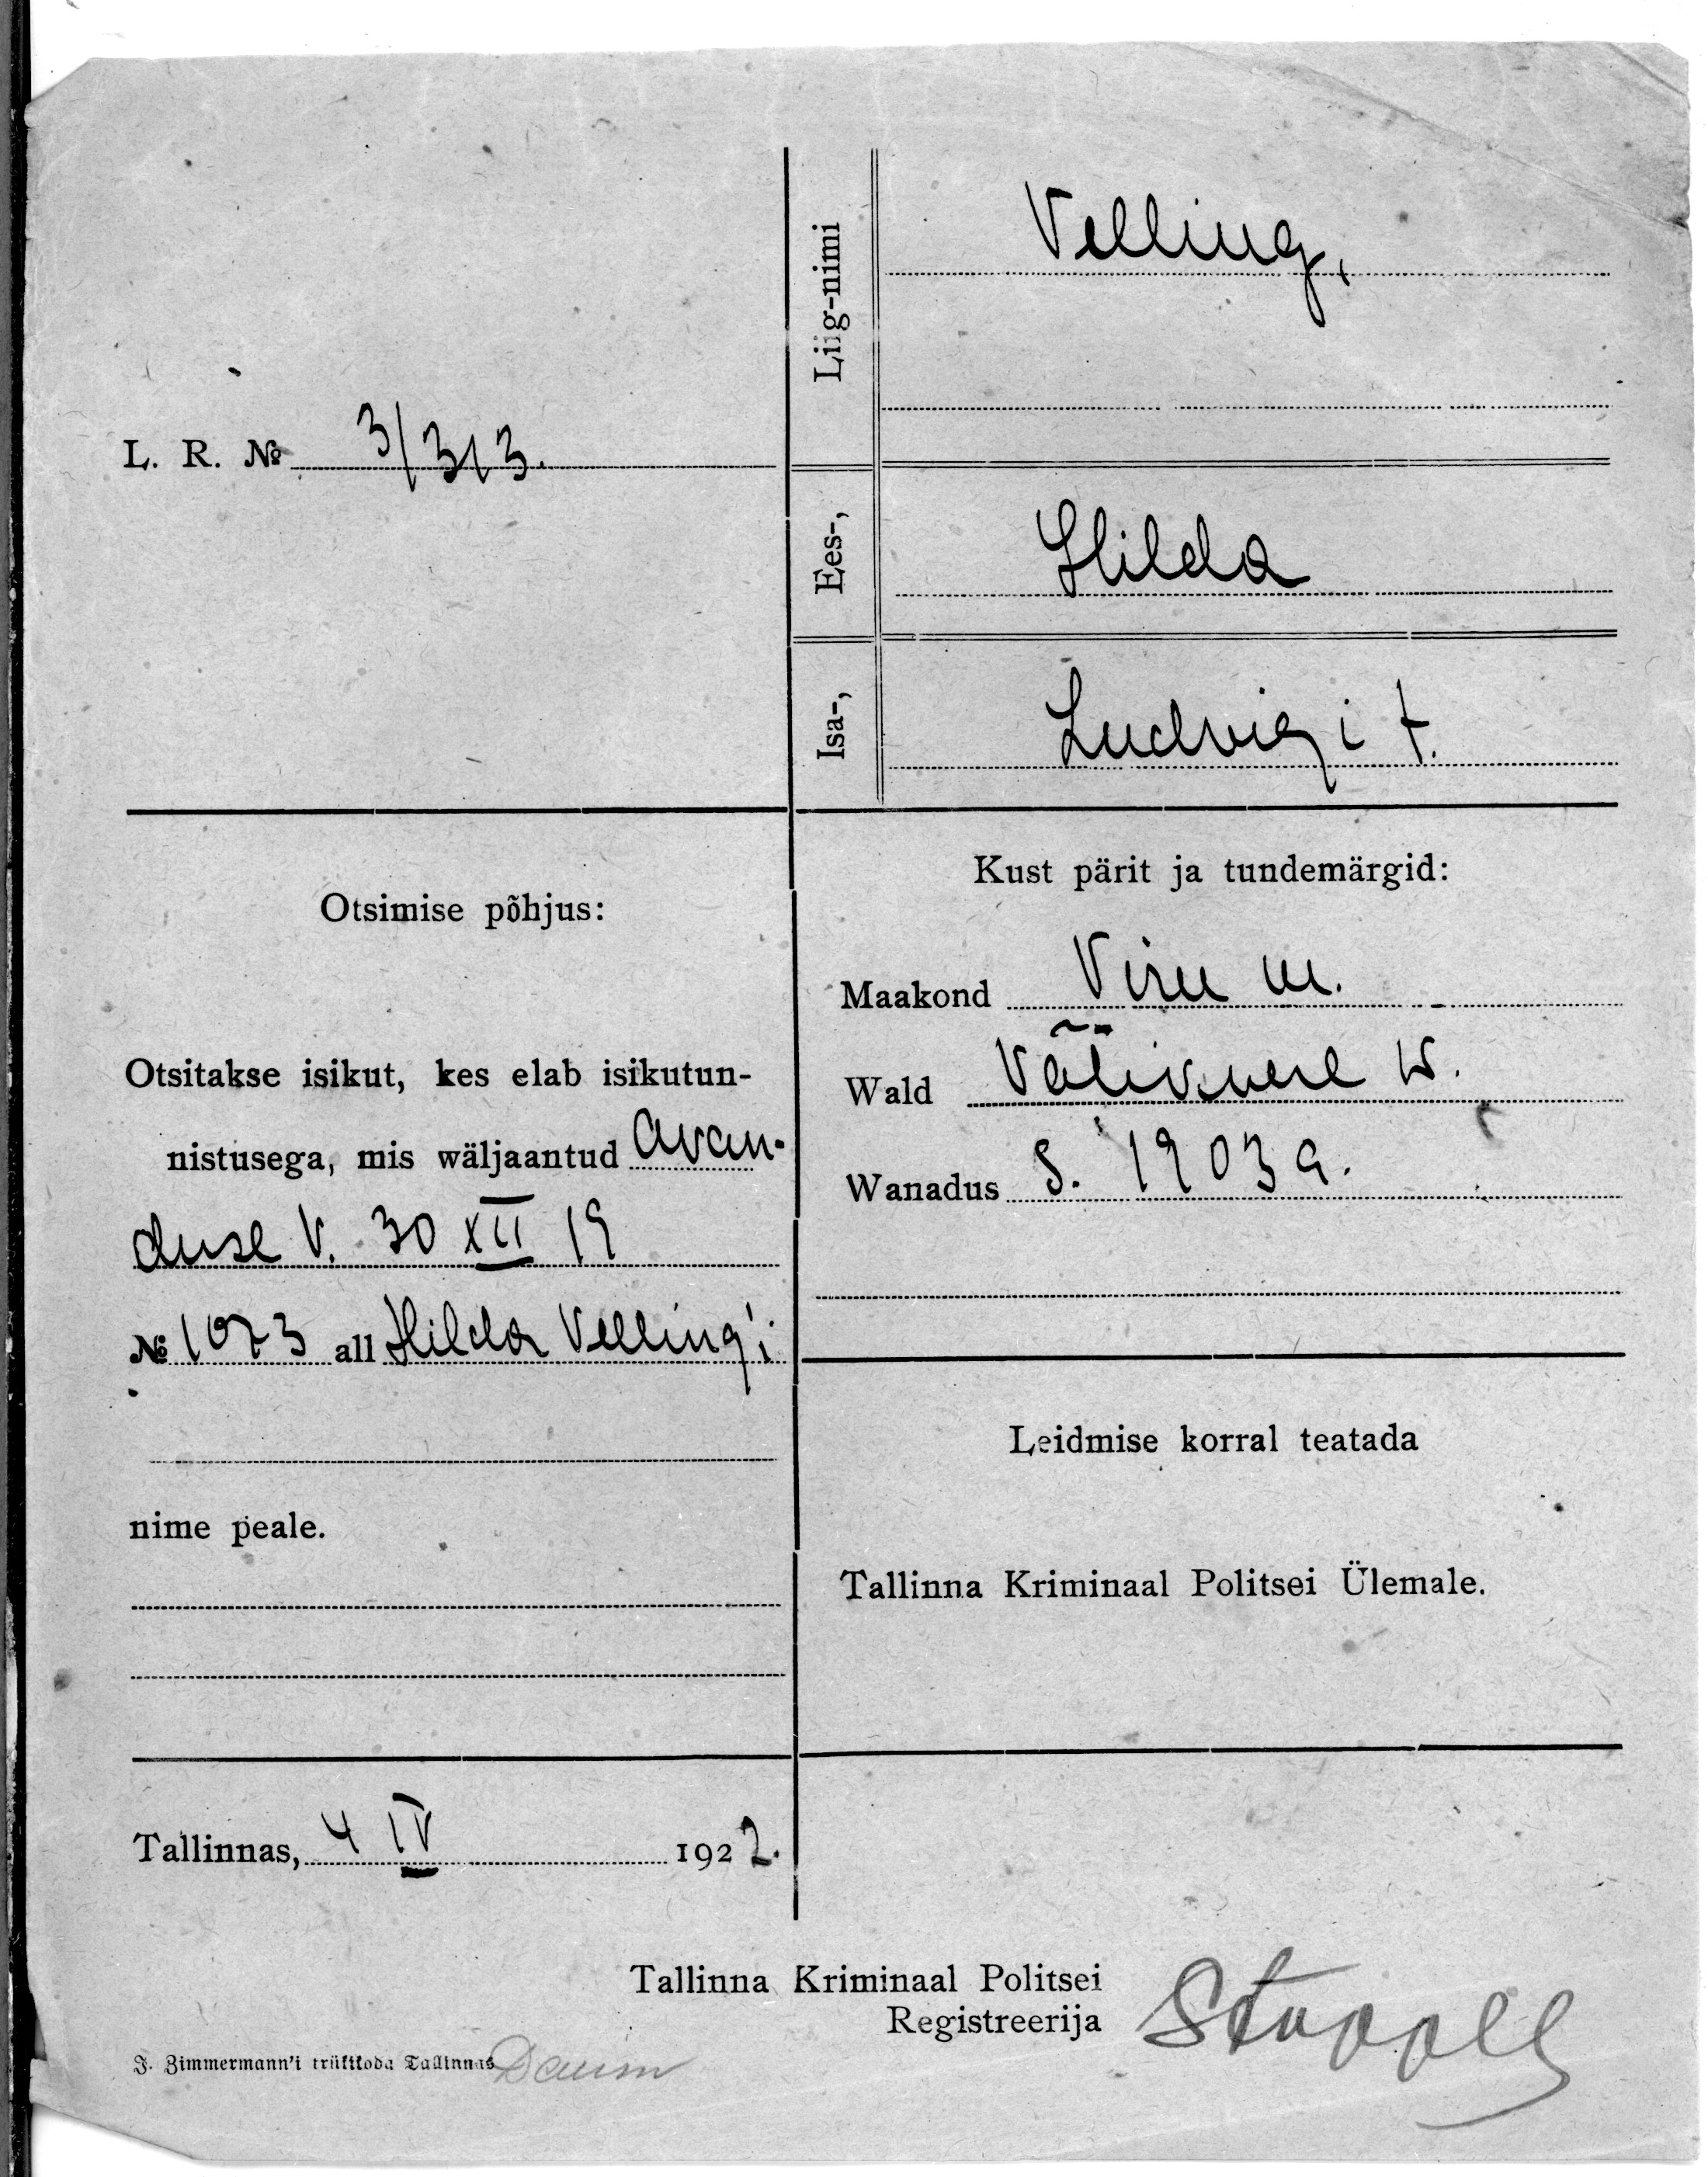 Liig-nimi
Velling,
L. R. № 3/313.
Ees-,
Hilda
Isa-,
Ludvigi t.
Otsimise põhjus:
Otsitakse isikut, kes elab isikutun-
nistusega, mis wäljaantud Avan-
duse V. 30 XII 19
№ 1073 all Hilda Velling'i
nime peale.
Kust pärit ja tundemärgid:
Maakond Viru m.
Wald W.
Wanadus S. 1903 a.
Leidmise korral teatada
Tallinna Kriminaal Politsei Ülemale.
Tallinnas, 4 IV 1922.
Tallinna Kriminaal Politsei
Registreerija
J. Zimmermann'i trükikoda Tallinnas